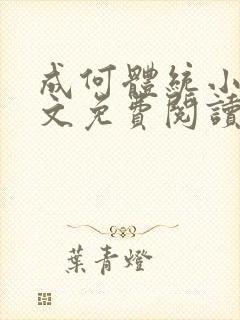 成何體統小
文免費閱讀
葉青燈